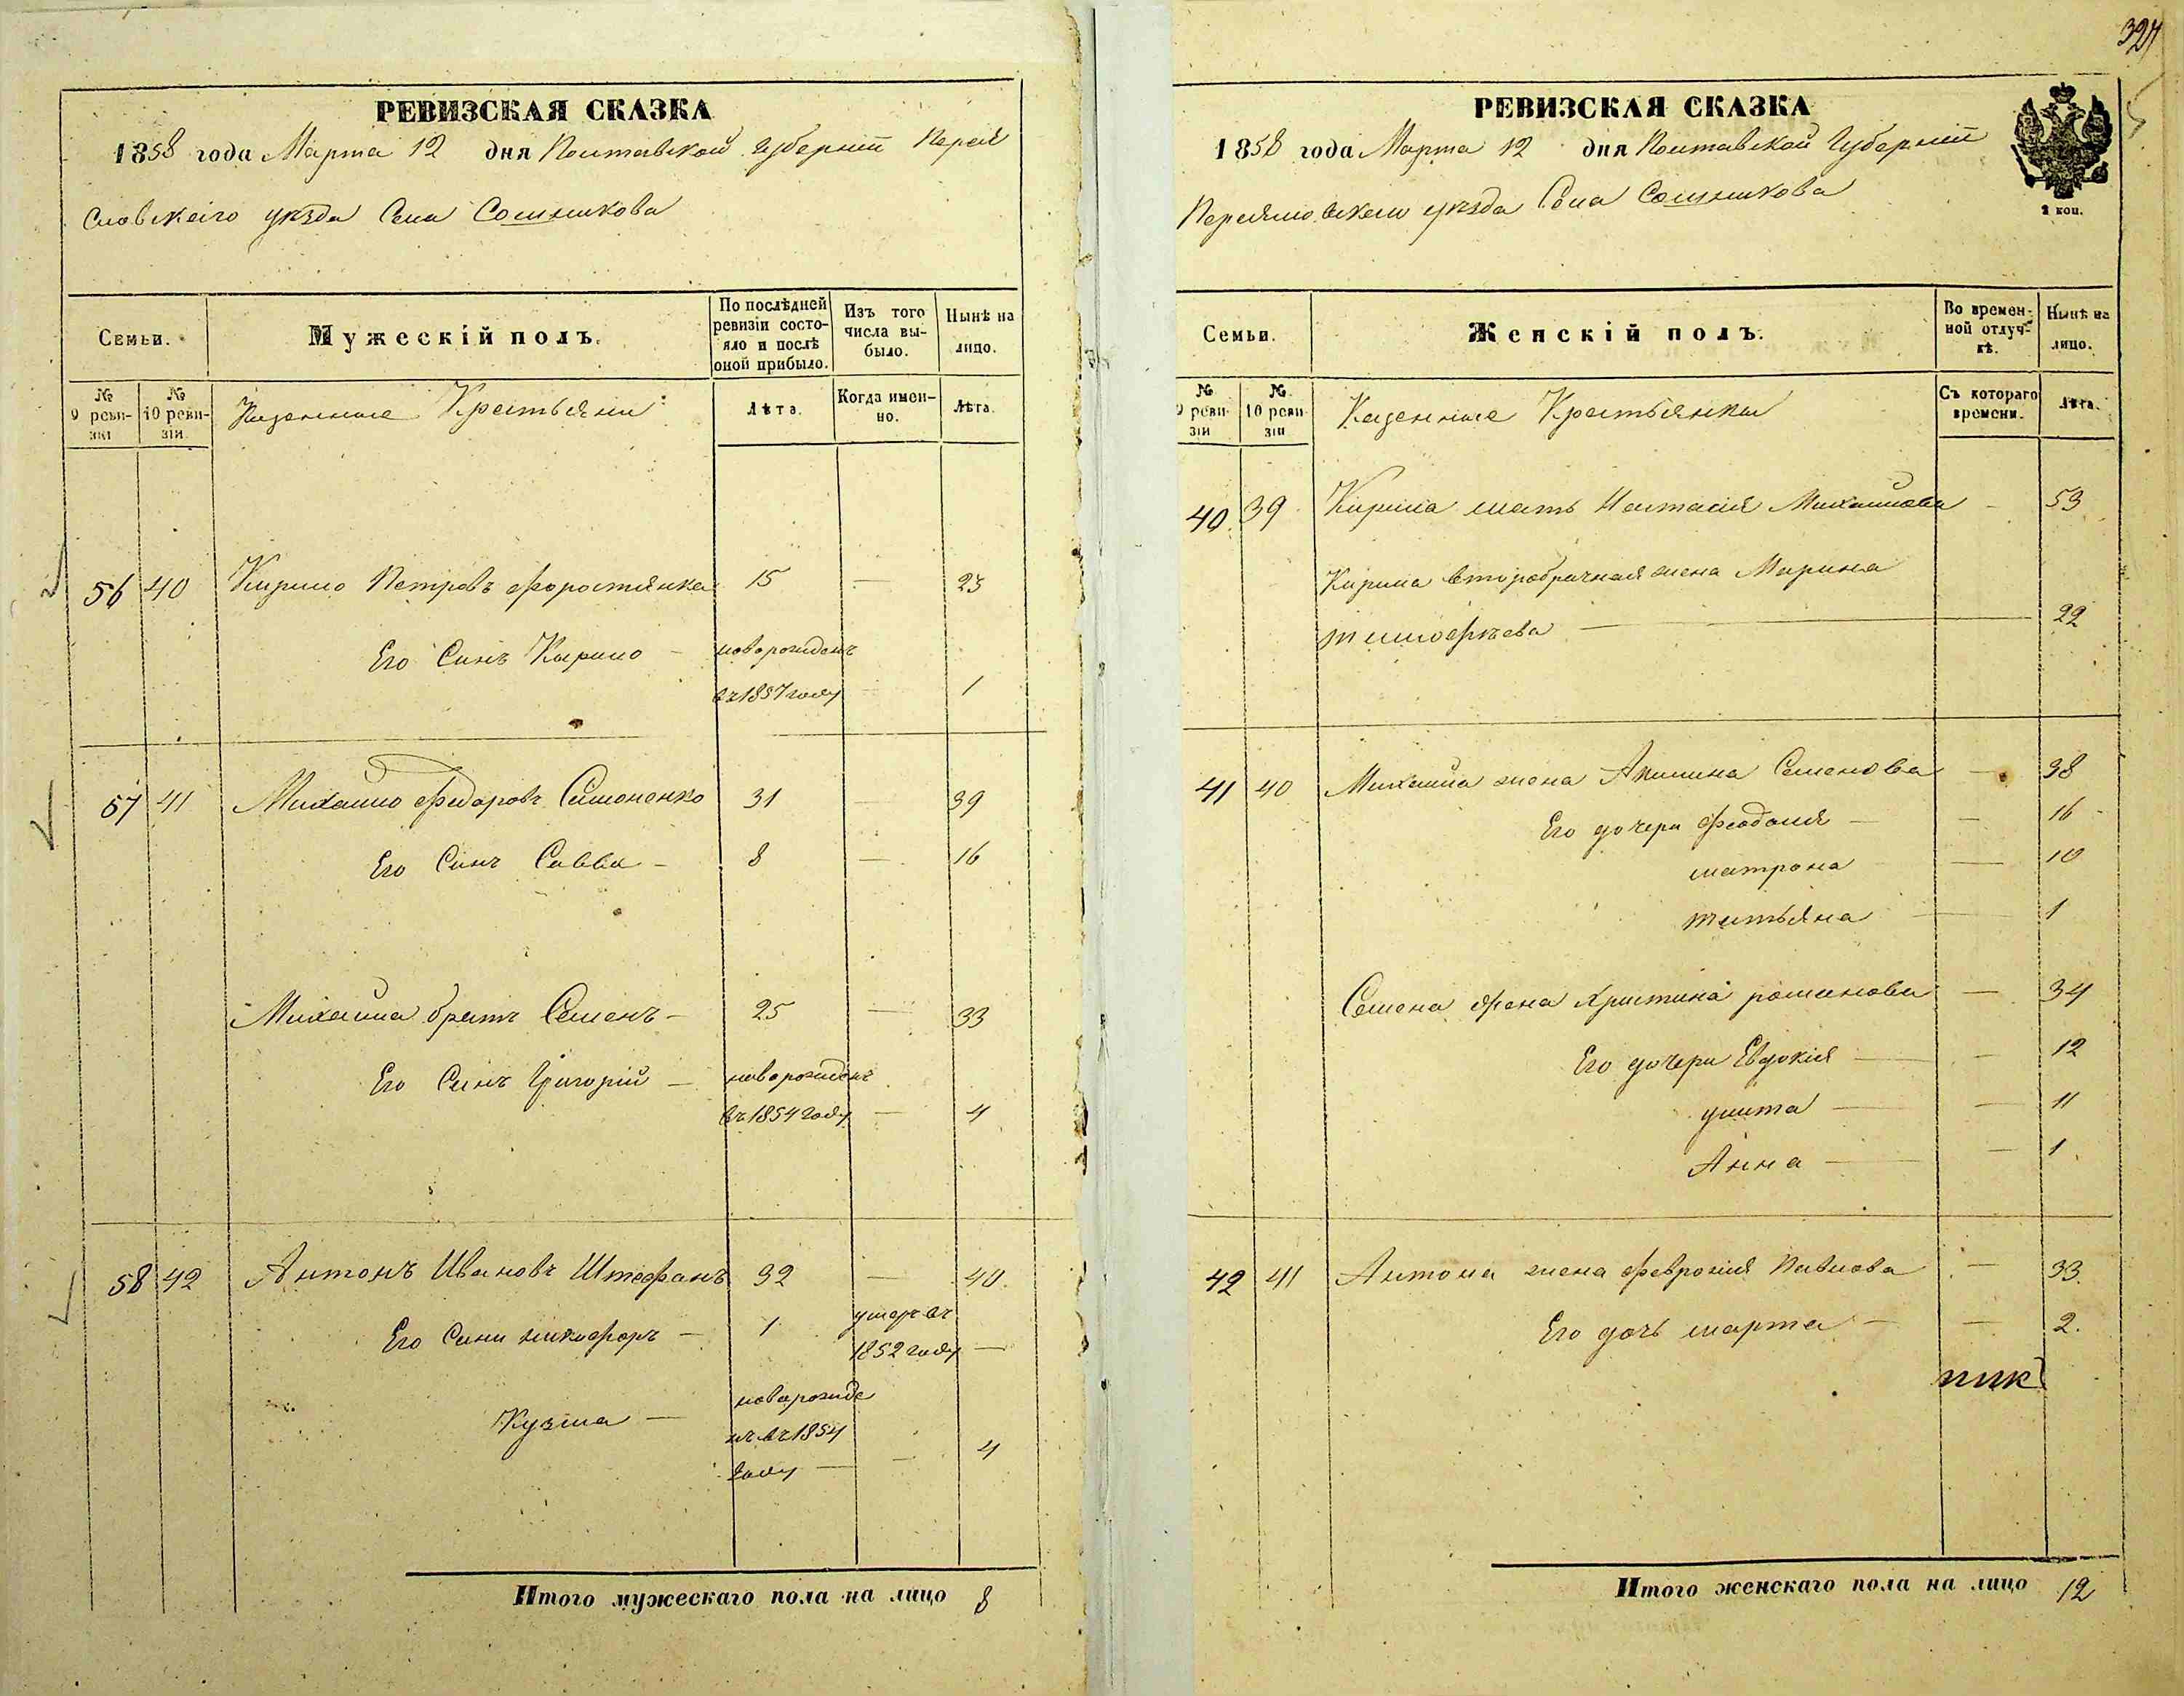 РЕВИЗСКАЯ СКАЗКА
1858 года Марта 12 дня Полтавской губерніи Перея
Словскаго уѣзда Села Сошникова
Семьи.
Мужескій полъ.
По послѣдней ревизіи состояло и послѣ оной прибыло.
Изъ того числа выбыло.
Нынѣ на лицо.
№ 9 ревизіи
№ 10 ревизіи
Казенные Крестьяни
Лѣта.
Когда именно.
Лѣта.
56 40 Кирило Петровъ Форостянка 15 — 23
Его Синъ Кирило — новорожденъ
въ 1857 году — 1
57 41 Михайло Федоровъ Симоненко 31 — 39
Его Синъ Савва — 8 — 16
Михайла братъ Семенъ — 25 — 33
Его Синъ Григорій — новорожденъ
въ 1854 году — 4
58 42 Антонъ Ивановъ Штефанъ 32 — 40.
Его Сини никифоръ — 1 умеръ въ
1852 году —
Кузма — новорожде
нъ въ 1854
году — — 4
Итого мужескаго пола на лицо 8
РЕВИЗСКАЯ СКАЗКА
1858 года Марта 12 дня Полтавской Губерніи
Переяславскаго уѣзда Села Сошникова
2 коп.
Семьи.
Женскій полъ.
Во временной отлучкѣ.
Нынѣ на лицо.
№ 9 ревизіи
№ 10 ревизіи
Казенные Крестьянки
Съ котораго времени.
Лѣта.
40 39 Кирила мать Настасія Михайлова — 53
Кирила второбрачная жена Марина
тимофѣева — 22
41 40 Михайла жена Акилина Семенова — 38
Его дочери Феодосія — — 16
матрона — 10
татьяна — 1
Семена жена Христина романова — 34
Его дочери Евдокія — — 12
улита — — 11
Анна — — 1
42 41 Антона жена Февронія Павлова — 33
Его дочь марта — — 2.
Итого женскаго пола на лицо 12